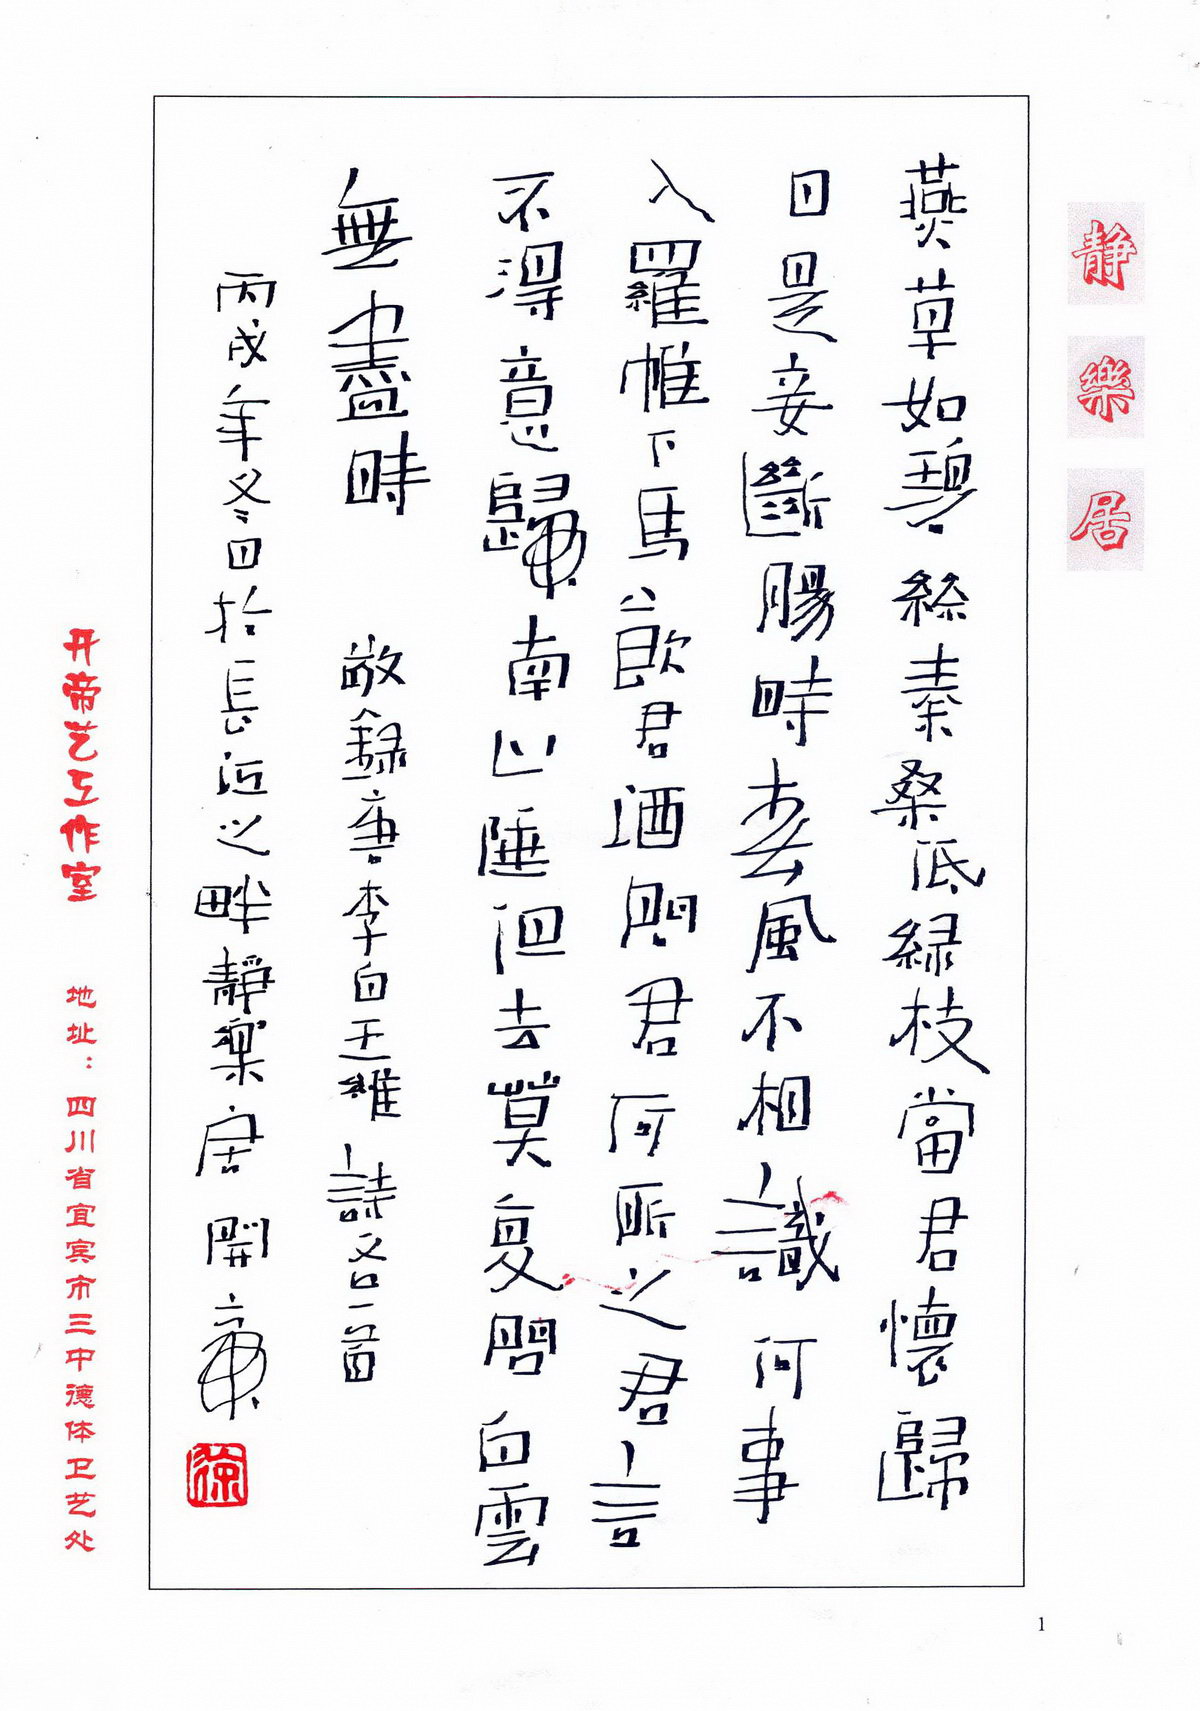 静樂居
燕草如碧絲秦桑低緑枝當君懷歸
日是妾斷腸時春風不相識何事
入羅帷下馬飲君酒問君何所之君言
不得意歸卧南山陲但去莫復問白雲
無盡時
敬録唐李白王維詩各一首
丙戌年冬日於長江之畔靜樂居開帝
开帝艺工作室
地址：四川省宜宾市三中德体卫艺处
1